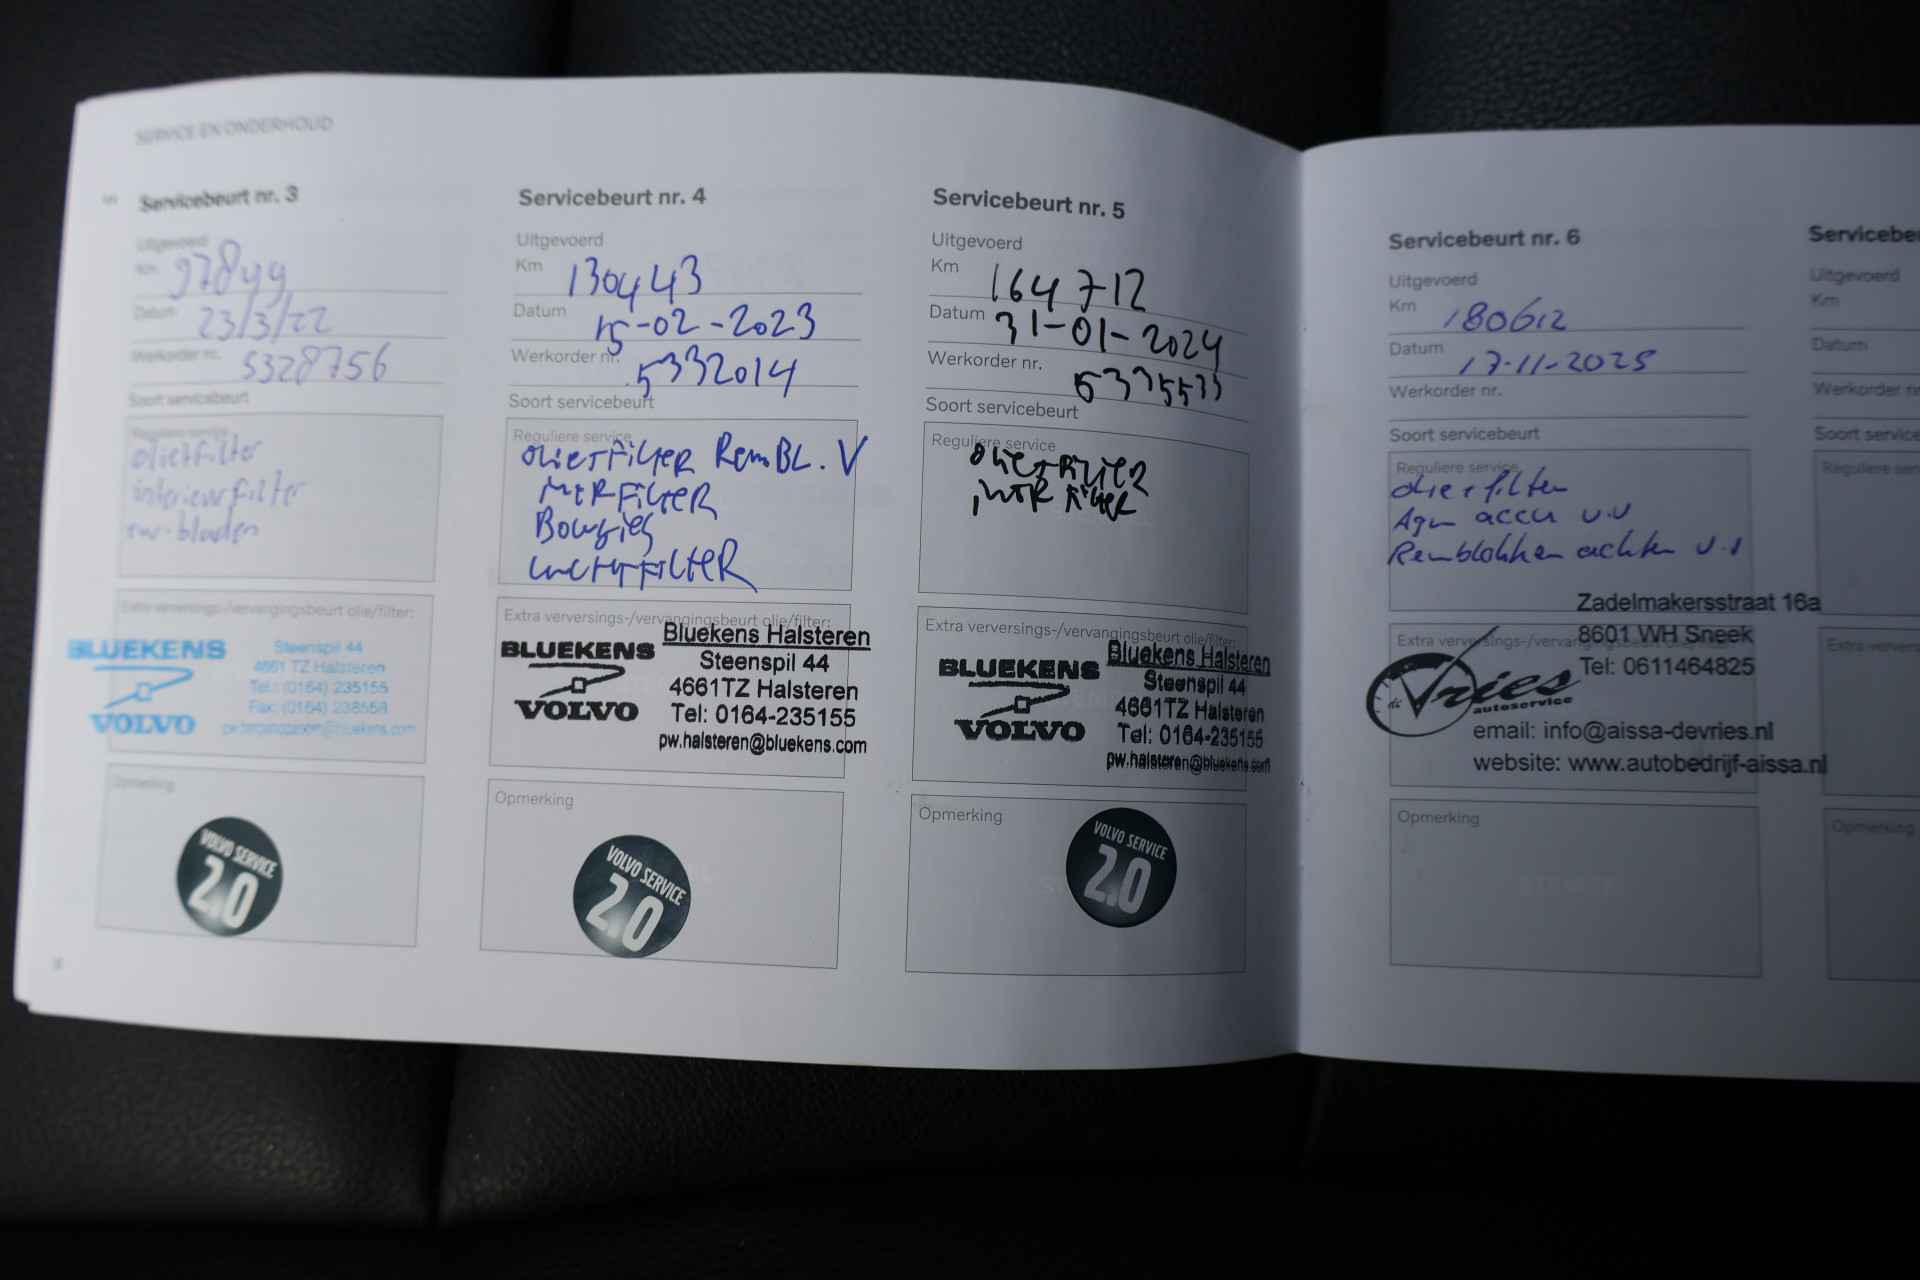 SERVICE EN ONDERHOUD
Servicebeurt nr. 3
Uitgevoerd
Km 97899
Datum 23/3/22
Werkorder nr. 5328756
Soort servicebeurt
Reguliere service
olie+filter
interieurfilter
rw-bladen
Extra verversings-/vervangingsbeurt olie/filter:
BLUEKENS
VOLVO
Steenspil 44
4661 TZ Halsteren
Tel.: (0164) 235155
Fax: (0164) 238558
Opmerking
VOLVO SERVICE
2.0
Servicebeurt nr. 4
Uitgevoerd
Km 130443
Datum 15-02-2023
Werkorder nr. 5332014
Soort servicebeurt
Reguliere service
olie+Filter RemBL. V
intR Filter
Bougies
LuchtFilter
Extra verversings-/vervangingsbeurt olie/filter:
BLUEKENS
VOLVO
Bluekens Halsteren
Steenspil 44
4661TZ Halsteren
Tel: 0164-235155
pw.halsteren@bluekens.com
Opmerking
VOLVO SERVICE
2.0
Servicebeurt nr. 5
Uitgevoerd
Km 164712
Datum 31-01-2024
Werkorder nr. 5335533
Soort servicebeurt
Reguliere service
olie+Filter
intR Filter
Extra verversings-/vervangingsbeurt olie/filter:
BLUEKENS
VOLVO
Bluekens Halsteren
Steenspil 44
4661TZ Halsteren
Tel: 0164-235155
pw.halsteren@bluekens.com
Opmerking
VOLVO SERVICE
2.0
Servicebeurt nr. 6
Uitgevoerd
Km 180612
Datum 17-11-2025
Werkorder nr.
Soort servicebeurt
Reguliere service
olie+filter
Agm accu v.v
Remblokken achter v.v
Extra verversings-/vervan
Zadelmakersstraat 16a
8601 WH Sneek
Tel: 0611464825
de Vries
autoservice
email: info@aissa-devries.nl
website: www.autobedrijf-aissa.nl
Opmerking
Servicebe
Uitgevoerd
Km
Datum
Werkorder n
Soort service
Reguliere serv
Extra ververs
Opmerking